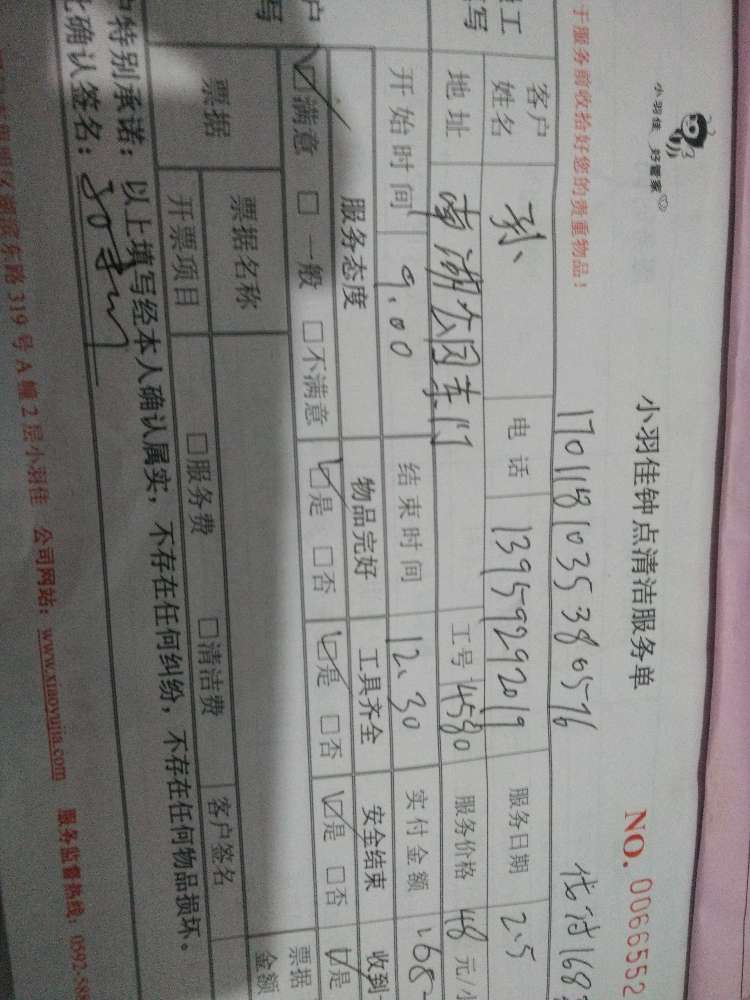 小羽佳 好管家
小羽佳钟点清洁服务单
NO. 0066552
于服务前收拾好您的贵重物品！
1701181035380576
代付168
客户姓名 孙 电话 13959292019 服务日期 2.5
地址 南湖公园东门 工号 4580 服务价格 48 元/小
开始时间 9.00 结束时间 12.30 实付金额 168
服务态度 物品完好 工具齐全 安全结束 收到
☑满意 □一般 □不满意 ☑是 □否 ☑是 □否 ☑是 □否 ☑是
票据 票据名称 票据金额
开票项目 □服务费 □清洁费 客户签名
户特别承诺：以上填写经本人确认属实，不存在任何纠纷，不存在任何物品损坏。
此确认签名：
滨东路 319 号 A 幢 2 层小羽佳 公司网站：www.xiaoyujia.com 服务监督热线：0592-58